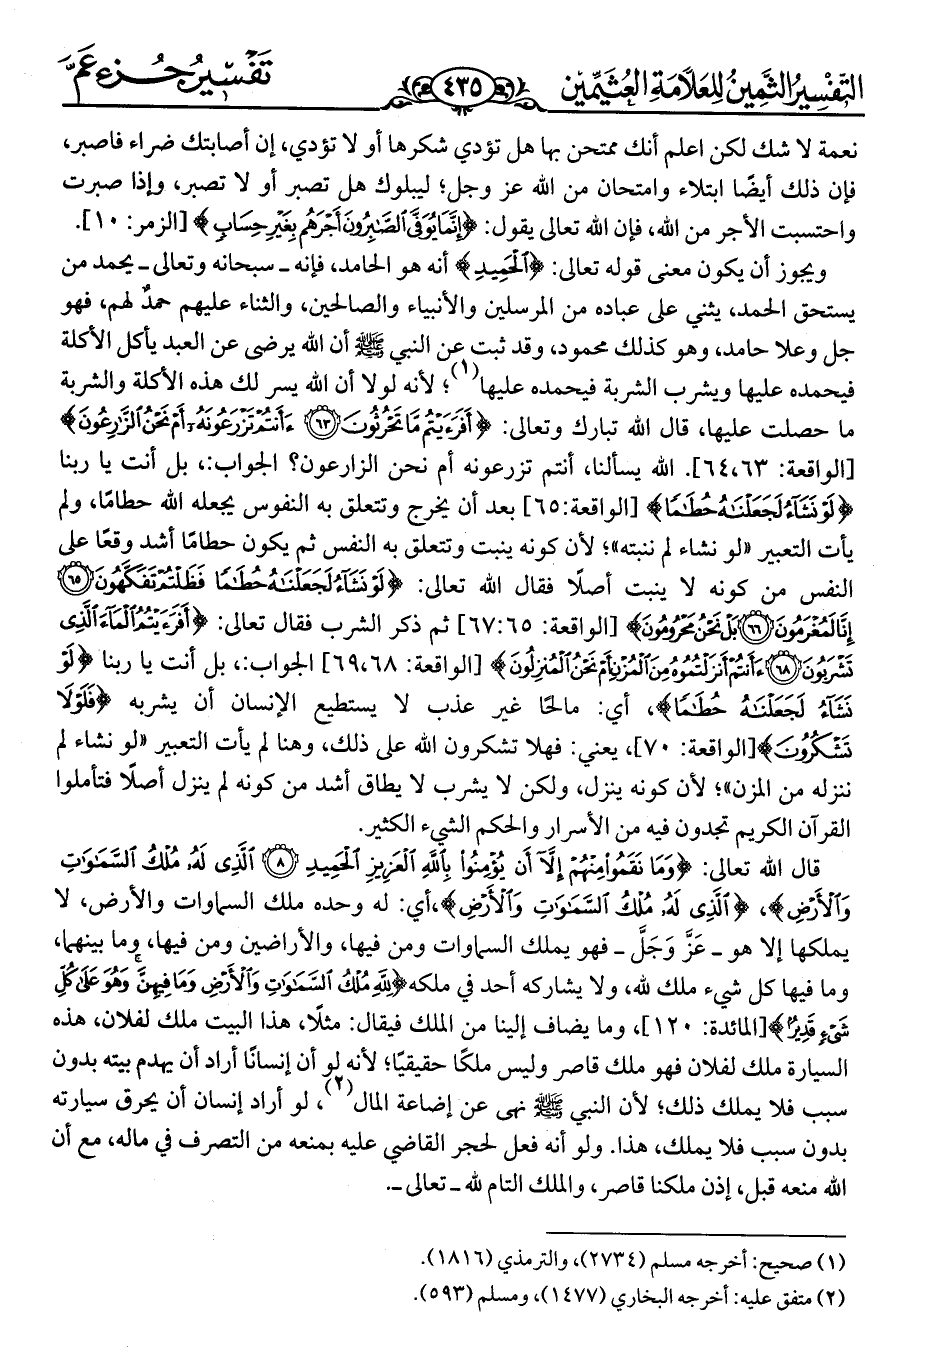 التفسير الثمين للعلامة العثيمين ٤٣٥ تفسير جزء عم
نعمة لا شك لكن اعلم أنك ممتحن بها هل تؤدي شكرها أو لا تؤدي، إن أصابتك ضراء فاصبر،
فإن ذلك أيضًا ابتلاء وامتحان من الله عز وجل؛ ليبلوك هل تصبر أو لا تصبر، وإذا صبرت
واحتسبت الأجر من الله، فإن الله تعالى يقول: ﴿إِنَّمَا يُوَفَّى ٱلصَّٰبِرُونَ أَجْرَهُم بِغَيْرِ حِسَابٍ﴾ [الزمر: ١٠].
ويجوز أن يكون معنى قوله تعالى: ﴿ٱلْحَمِيدِ﴾ أنه هو الحامد، فإنه ـ سبحانه وتعالى ـ يحمد من
يستحق الحمد، يثني على عباده من المرسلين والأنبياء والصالحين، والثناء عليهم حمدٌ لهم، فهو
جل وعلا حامد، وهو كذلك محمود، وقد ثبت عن النبي ﷺ أن الله يرضى عن العبد يأكل الأكلة
فيحمده عليها ويشرب الشربة فيحمده عليها(١)؛ لأنه لولا أن الله يسر لك هذه الأكلة والشربة
ما حصلت عليها، قال الله تبارك وتعالى: ﴿أَفَرَءَيْتُم مَّا تَحْرُثُونَ ٦٣ ءَأَنتُمْ تَزْرَعُونَهُۥٓ أَمْ نَحْنُ ٱلزَّٰرِعُونَ﴾
[الواقعة: ٦٤،٦٣]. الله يسألنا، أنتم تزرعونه أم نحن الزارعون؟ الجواب:، بل أنت يا ربنا
﴿لَوْ نَشَآءُ لَجَعَلْنَٰهُ حُطَٰمًا﴾ [الواقعة:٦٥] بعد أن يخرج وتتعلق به النفوس يجعله الله حطامًا، ولم
يأت التعبير «لو نشاء لم ننبته»؛ لأن كونه ينبت وتتعلق به النفس ثم يكون حطامًا أشد وقعًا على
النفس من كونه لا ينبت أصلًا فقال الله تعالى: ﴿لَوْ نَشَآءُ لَجَعَلْنَٰهُ حُطَٰمًا فَظَلْتُمْ تَفَكَّهُونَ ٦٥
إِنَّا لَمُغْرَمُونَ ٦٦ بَلْ نَحْنُ مَحْرُومُونَ﴾ [الواقعة: ٦٧:٦٥] ثم ذكر الشرب فقال تعالى: ﴿أَفَرَءَيْتُمُ ٱلْمَآءَ ٱلَّذِى
تَشْرَبُونَ ٦٨ ءَأَنتُمْ أَنزَلْتُمُوهُ مِنَ ٱلْمُزْنِ أَمْ نَحْنُ ٱلْمُنزِلُونَ﴾ [الواقعة: ٦٩،٦٨] الجواب:، بل أنت يا ربنا ﴿لَوْ
نَشَآءُ لَجَعَلْنَٰهُ حُطَٰمًا﴾، أي: مالحًا غير عذب لا يستطيع الإنسان أن يشربه ﴿فَلَوْلَا
تَشْكُرُونَ﴾[الواقعة: ٧٠]، يعني: فهلا تشكرون الله على ذلك، وهنا لم يأت التعبير «لو نشاء لم
ننزله من المزن»؛ لأن كونه ينزل، ولكن لا يشرب لا يطاق أشد من كونه لم ينزل أصلًا فتأملوا
القرآن الكريم تجدون فيه من الأسرار والحكم الشيء الكثير.
قال الله تعالى: ﴿وَمَا نَقَمُوا۟ مِنْهُمْ إِلَّآ أَن يُؤْمِنُوا۟ بِٱللَّهِ ٱلْعَزِيزِ ٱلْحَمِيدِ ٨ ٱلَّذِى لَهُۥ مُلْكُ ٱلسَّمَٰوَٰتِ
وَٱلْأَرْضِ﴾، ﴿ٱلَّذِى لَهُۥ مُلْكُ ٱلسَّمَٰوَٰتِ وَٱلْأَرْضِ﴾،أي: له وحده ملك السماوات والأرض، لا
يملكها إلا هو ـ عَزَّ وَجَلَّ ـ فهو يملك السماوات ومن فيها، والأراضين ومن فيها، وما بينهما،
وما فيها كل شيء ملك لله، ولا يشاركه أحد في ملكه﴿لِلَّهِ مُلْكُ ٱلسَّمَٰوَٰتِ وَٱلْأَرْضِ وَمَا فِيهِنَّ ۚ وَهُوَ عَلَىٰ كُلِّ
شَىْءٍ قَدِيرٌ﴾[المائدة: ١٢٠]، وما يضاف إلينا من الملك فيقال: مثلًا، هذا البيت ملك لفلان، هذه
السيارة ملك لفلان فهو ملك قاصر وليس ملكًا حقيقيًا؛ لأنه لو أن إنسانًا أراد أن يهدم بيته بدون
سبب فلا يملك ذلك؛ لأن النبي ﷺ نهى عن إضاعة المال(٢)، لو أراد إنسان أن يحرق سيارته
بدون سبب فلا يملك، هذا. ولو أنه فعل لحجر القاضي عليه بمنعه من التصرف في ماله، مع أن
الله منعه قبل، إذن ملكنا قاصر، والملك التام لله ـ تعالى ـ.
(١) صحيح: أخرجه مسلم (٢٧٣٤)، والترمذي (١٨١٦).
(٢) متفق عليه: أخرجه البخاري (١٤٧٧)، ومسلم (٥٩٣).